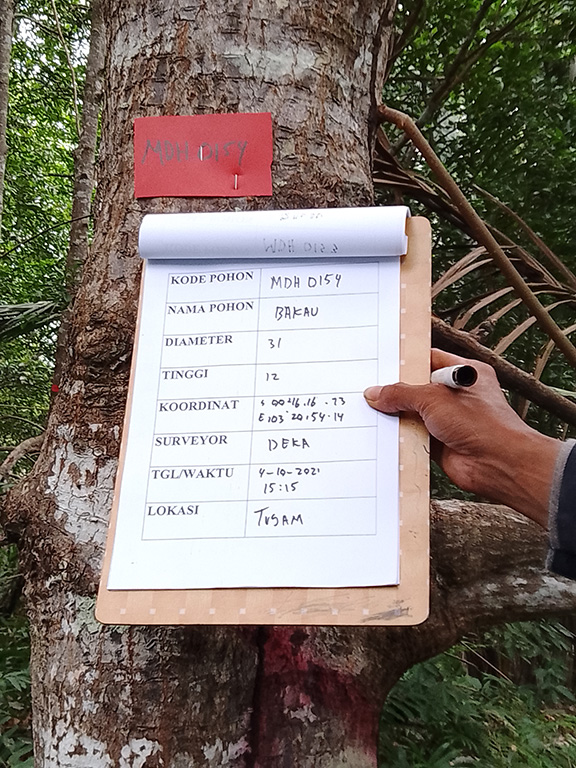 MDH 0154
KODE POHON MDH 0154
NAMA POHON BAKAU
DIAMETER 31
TINGGI 12
KOORDINAT S 00°16.16.73
E.103°20.54.14
SURVEYOR DEKA
TGL/WAKTU 4-10-2021
15:15
LOKASI TUSAM